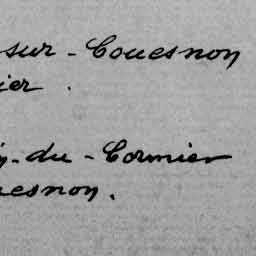 sur-Couesnon
ier.
-du-Cormier
uesnon.